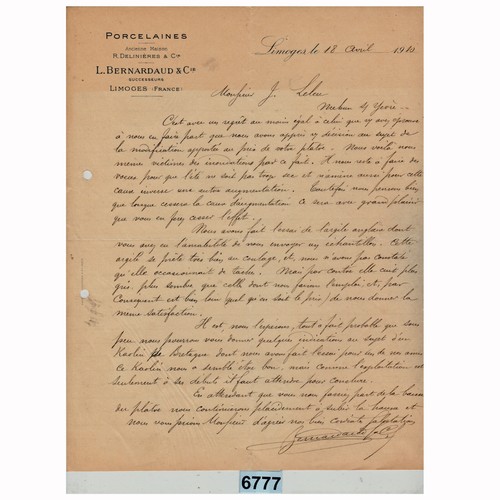 PORCELAINES
Ancienne Maison
R. Delinières & Cie
L. Bernardaud & Cie
SUCCESSEURS
Limoges (France)
Limoges le 18 Avril 1910
Monsieur J. Leleu
Mehun s/ Yèvre
C'est avec un regret au moins égal à celui que vous avez éprouvé
à nous en faire part que nous avons appris la décision au sujet de
la modification apportée au prix de votre plâtre. Nous voilà nous
même victimes des inondations par ce fait. Il nous reste à faire des
voeux pour que l'été ne soit pas trop sec et n'amène aussi pour cette
cause inverse une autre augmentation. Toutefois nous pensons bien
que lorsque cessera la cause d'augmentation ce sera avec grand plaisir
que vous en ferez cesser l'effet.
Nous avons fait l'essai de l'argile anglaise dont
vous avez eu l'amabilité de nous envoyer un échantillon. Cette
argile se prête très bien au coulage, et nous n'avons pas constaté
qu'elle occasionnait de taches. Mais par contre elle cuit plus
gris, plus sombre que celle dont nous faisons l'emploi et, par
conséquent est bien loin quel qu'en soit le prix, de nous donner la
même satisfaction.
Il est, nous l'espérons, tout à fait probable que sous
peu nous pourrons vous donner quelques indications au sujet d'un
Kaolin de Bretagne dont nous avons fait l'essai
ce Kaolin nous a semblé très bon, mais comme l'exploitation est
seulement à ses débuts il faut attendre pour conclure.
En attendant que vous nous fassiez part de la baisse
du plâtre nous continuerons à subir la hausse et
nous vous prions Monsieur d'agréer nos bien cordiales salutations
Bernardaud & Cie
6777